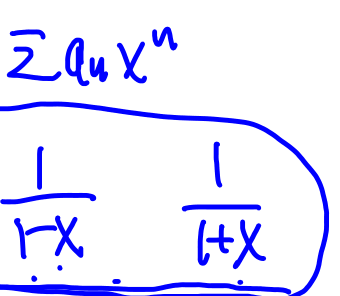 Σ aₙ xⁿ
1/(1-x) 1/(1+x)